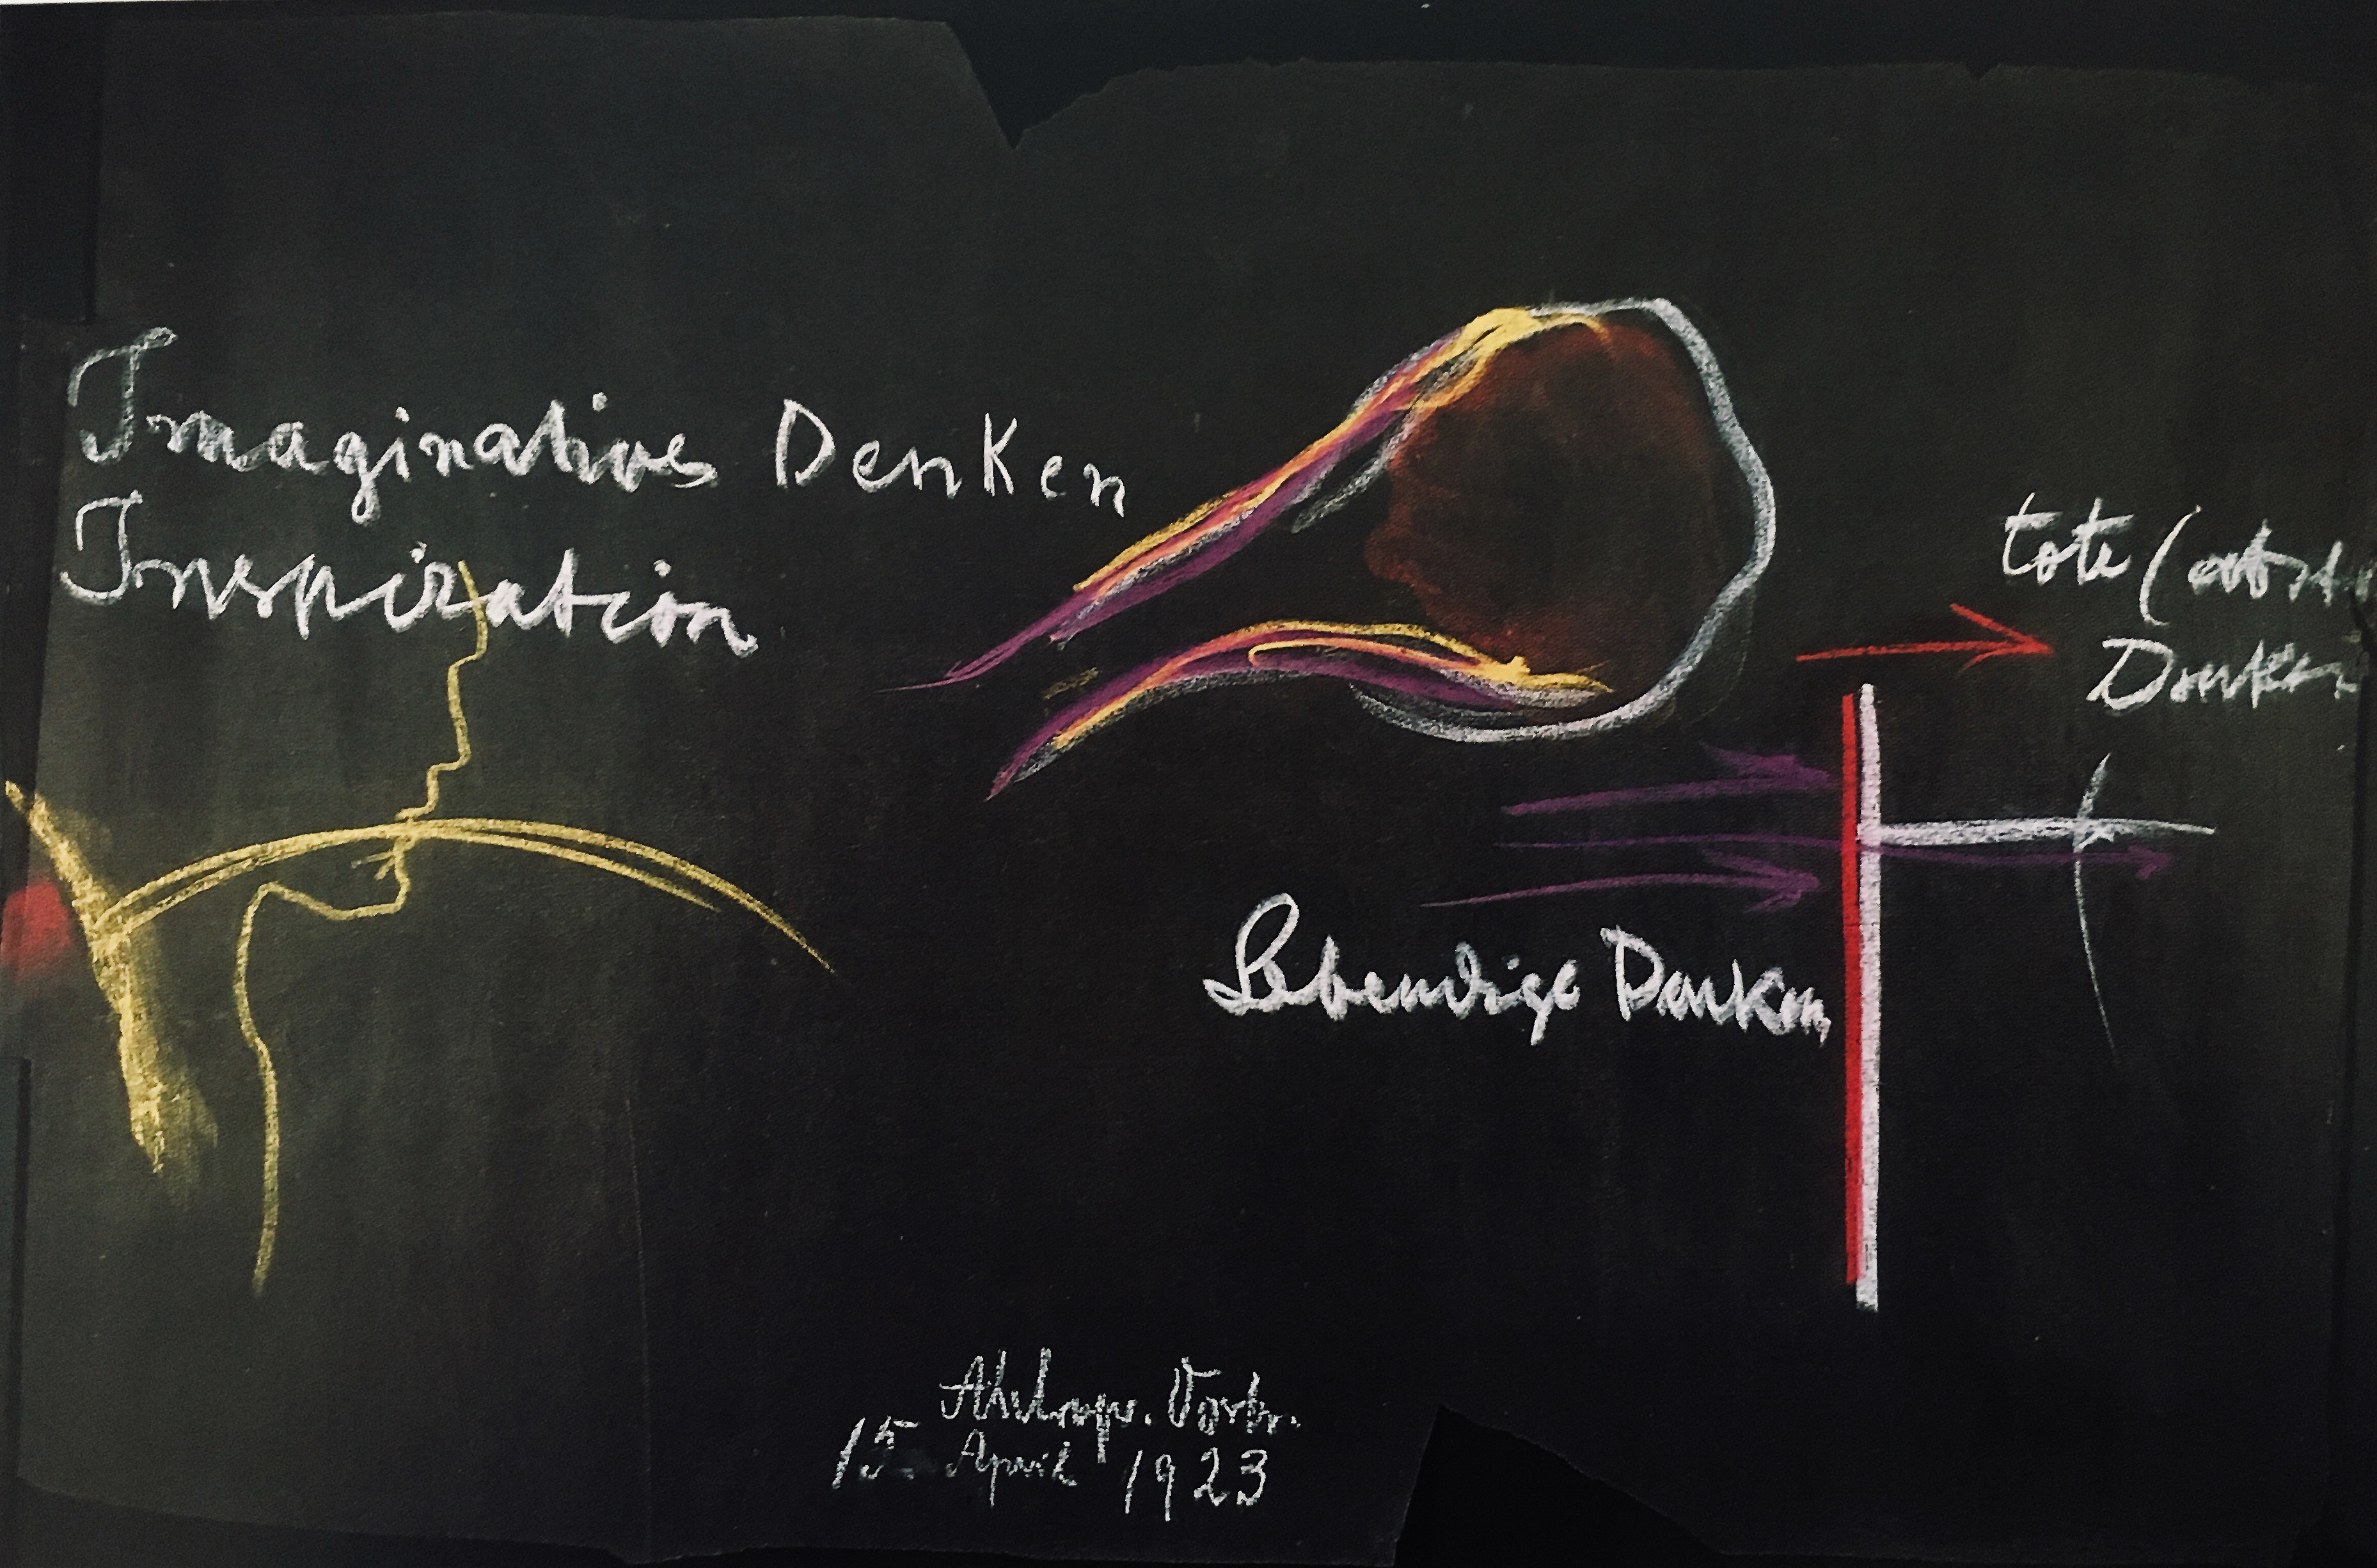 Imaginatives Denken
Inspiration
tote (abstr
Denken
Lebendige Denken
Anthrop. Vortr.
15 April 1923